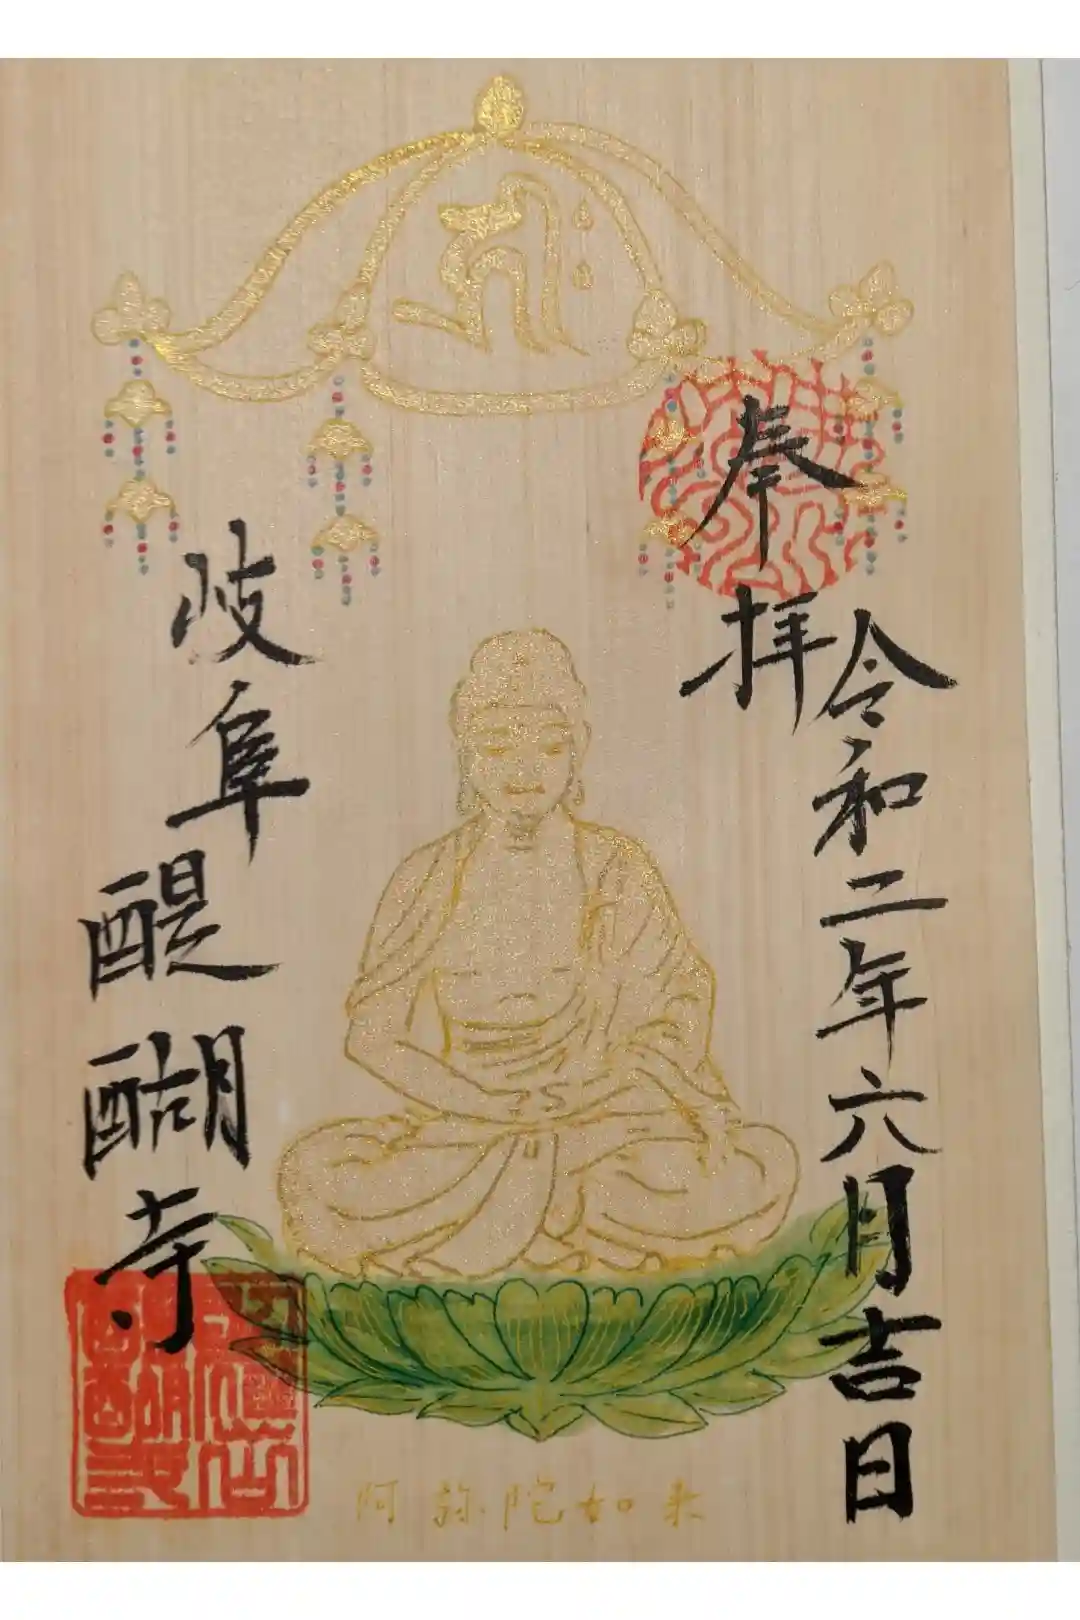 奉拝
令和二年六月吉日
岐阜
醍醐寺
阿弥陀如来